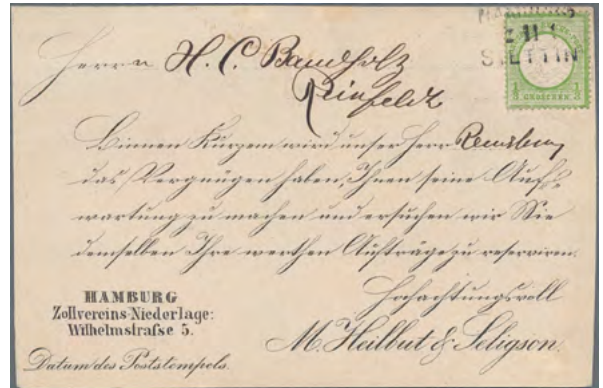 HAMBURG
Z 11
STETTIN
1/3 GROSCHEN 1/3
Herrn H. C. Bandholz
Reinfeldt
Binnen Kurzem wird unser Herr
das Vergnügen haben, Ihnen seine Auf-
wartung zu machen und ersuchen wir Sie
demselben Ihre werthen Aufträge zu reserviren.
Hochachtungsvoll
M. Heilbut & Seligson.
HAMBURG
Zollvereins-Niederlage:
Wilhelmstraſse 5.
Datum des Poststempels.